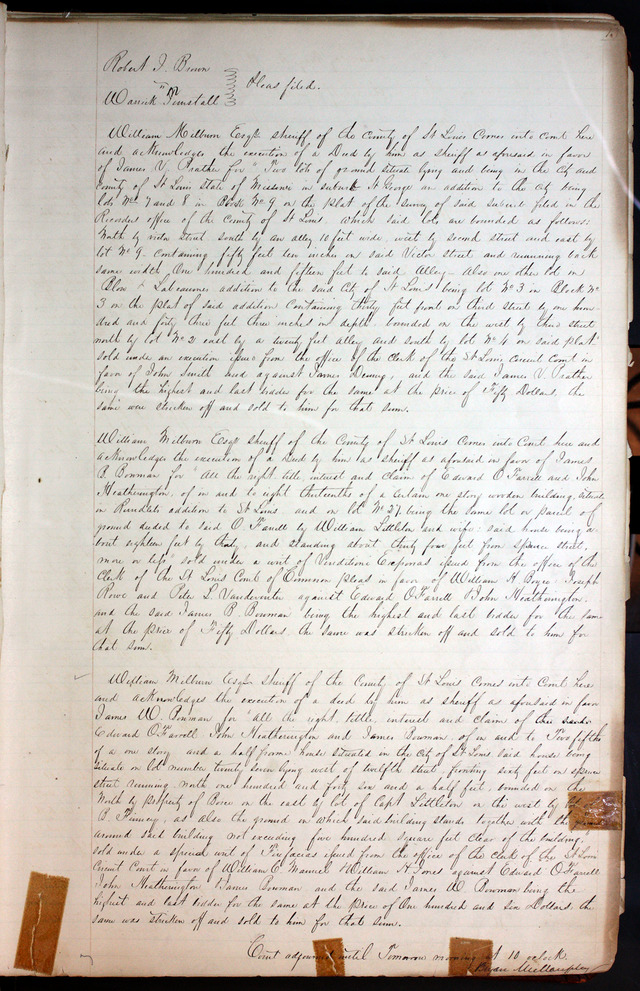 Robert J. Brown
vs Pleas filed.
Warrick Tunstall
William Milburn Esqr sheriff of the County of St Louis Comes into Court here
and acknowledges the execution of a Deed by him as sheriff as aforesaid in favor
of James V. Prather for "Two lots of ground situate lying and being in the City and
county of St Louis state of Missouri in suburb St George an addition to the City being
lots Nos 7 and 8 in Block No 9 on the plat of the survey of said suburb filed in the
Recorders office of the County of St Louis which said lots are bounded as follows.
North by victor street south by an alley 10 feet wide, west by second street and east by
lot No 9 - containing fifty feet ten inches on said Victor street and running back
same width One hundred and fifteen feet to said Alley - also one other lot in
Blow & Labeaumes addition to the said City of St Louis being lot No 3 in Block No
3 on the plat of said addition Containing thirty feet front on third street by one hun-
dred and forty three feet three inches in depth. bounded on the west by third street
north by lot No 2 east by a twenty feet alley and south by lot No 4 on said plat"
sold under an execution issued from the office of the Clerk of the St Louis Circuit Court in
favor of John Smith and against James Dewey, and the said James V. Prather
being the highest and last bidder for the same at the price of Fifty Dollars, the
same were stricken off and sold to him for that sum.
William Milburn Esqr sheriff of the County of St Louis Comes into Court here and
acknowledges the execution of a Deed by him as sheriff as aforesaid in favor of James
B. Bowman for "All the right, title, interest and claim of Edward O'Farrell and John
Heatherington, of in and to eight thirteenths of a certain one story wooden building, situate
in Rundlets addition to St Louis and on lot No 27 being the same lot or parcel of
ground deeded to said O'Farrell by William Littleton and wife: said house being a
bout eighteen feet by thirty, and standing about thirty four feet from spruce street,
more or less" sold under a writ of Venditioni Exponas issued from the office of the
Clerk of the St Louis Court of Common pleas in favor of William H. Boyce Joseph
Rowe and Peter L. Vandeventer against Edward O'Farrell & John Heatherington,
and the said James B. Bowman being the highest and last bidder for the same
at the price of Fifty Dollars, the same was stricken off and sold to him for
that sum.
William Milburn Esqr sheriff of the County of St Louis Comes into Court here
and acknowledges the execution of a deed by him as sheriff as aforesaid in favor
James W. Bowman for "all the right, title, interest and claim of the said
Edward O'Farrell John Heatherington and James Bowman, of in and to Two fifths
of a one story and a half frame house situated in the City of St Louis said house being
situate on lot number twenty seven lying west of twelfth street, fronting sixty feet on spruce
street running north one hundred and forty six and a half feet, bounded on the
North by property of Boree on the east by lot of Capt Littleton on the west by lot
B. Finney, as also the ground on which said building stands together with the ground
around said building not exceeding five hundred square feet clear of the building.
sold under a special writ of Fierifacias issued from the office of the clerk of the St Louis
Circuit Court in favor of William C. Maurice & William H. Jones against Edward O'Farrell
John Heatherington & James Bowman and the said James W. Bowman being the
highest and last bidder for the same at the price of One hundred and six Dollars, the
same was stricken off and sold to him for that sum.
Court adjourned until Tomorrow morning at 10 oclock.
Bryan Mullanphy